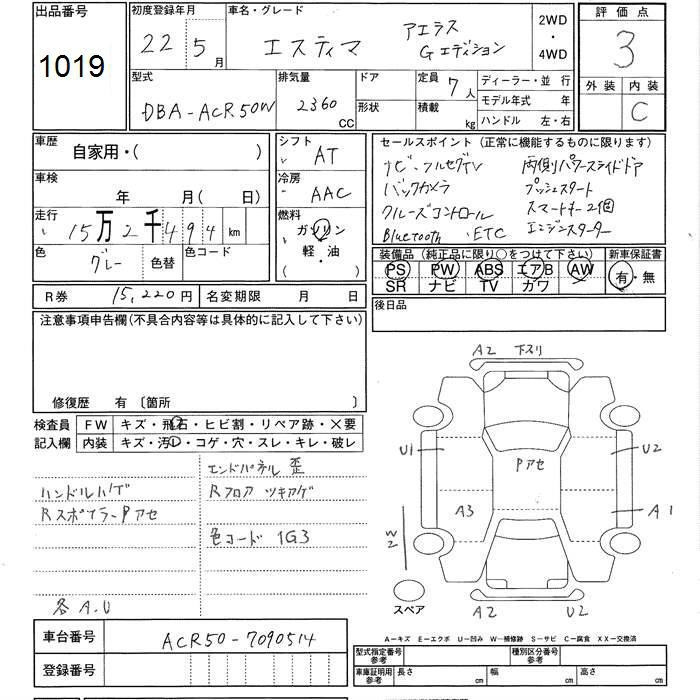 出品番号
1019
初度登録年月
22年 5月
車名・グレード
エスティマ
アエラス
Gエディション
2WD
・
4WD
評価点
3
外装 内装
C
型式
DBA-ACR50W
排気量
2360
CC
ドア
形状
定員 7人
積載 kg
ディーラー・並 行
モデル年式 年
ハンドル 左・右
車歴
自家用・( )
シフト
AT
車検
年 月( 日)
冷房
AAC
走行
15万2千494km
燃料
ガソリン
軽・油
( )
色
グレー
色替
色コード
セールスポイント (正常に機能するものに限ります)
ナビ・フルセグTV 両側パワースライドドア
バックカメラ プッシュスタート
クルーズコントロール スマートキー2個
Bluetooth ・ETC エンジンスターター
装備品 (純正品に限り○をつけて下さい)
PS PW ABS エアB AW
SR ナビ TV 革 ガワ
新車保証書
有・無
R券 15,220円
名変期限 月 日
後日品
注意事項申告欄(不具合内容等は具体的に記入して下さい)
修復歴 有 〔箇所 〕
検査員
記入欄
FW キズ・飛石・ヒビ割・リペア跡・×要
内装 キズ・汚れ・コゲ・穴・スレ・キレ・破レ
エンドパネル 歪
ハンドルハゲ
Rフロア ツキアゲ
Rスポイラー Pアセ
色コード 1G3
各A.U
A2 下スリ
U1
Pアセ
U2
A3
A1
W2
スペア
A2
U2
A-キズ E-エクボ U-凹み W-補修跡 S-サビ C-腐食 XX-交換済
車台番号
ACR50-7090514
登録番号
型式指定番号
参考
種別区分番号
参考
車庫証明用
参考
長さ cm
幅 cm
高さ cm